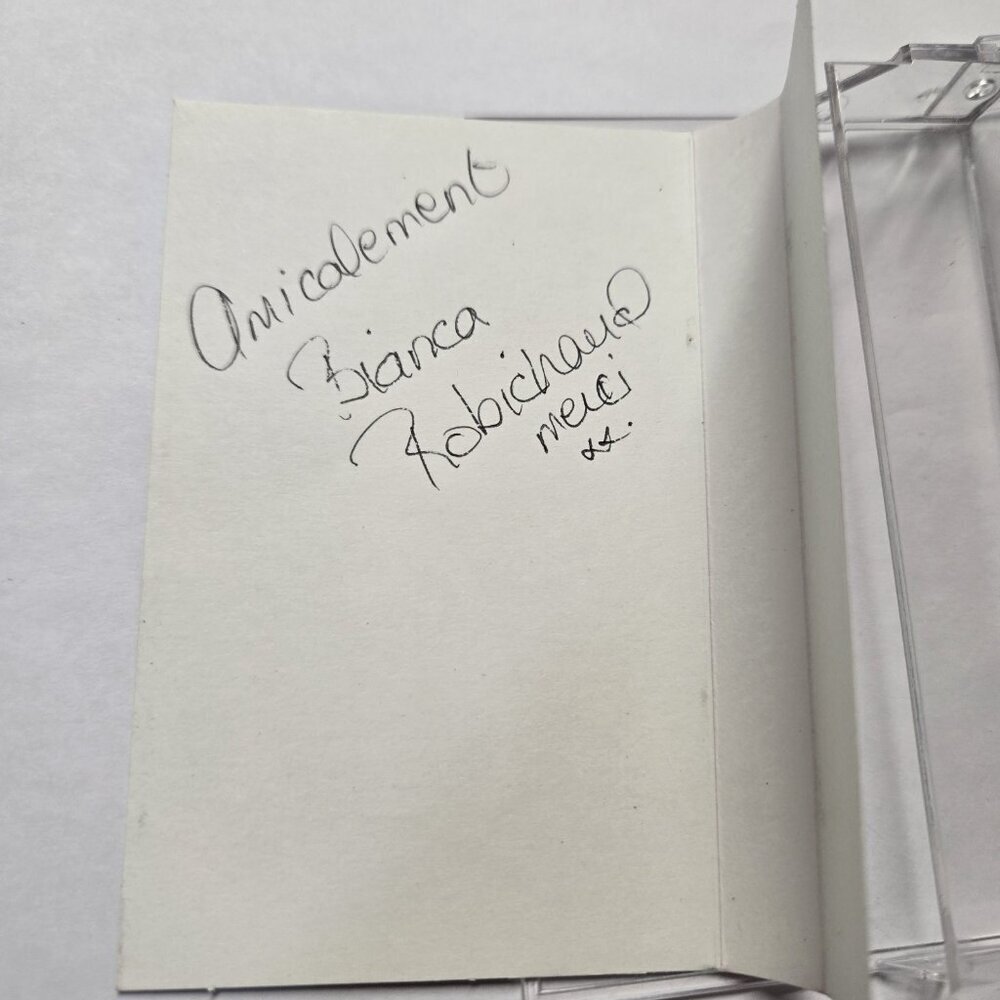 Amicalement
Bianca
Robichaud
merci
xx.